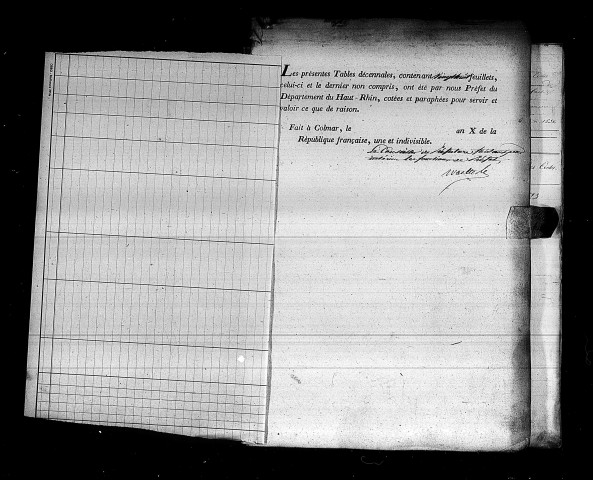 Les présentes Tables décennales, contenant feuillets,
celui-ci et le dernier non compris, ont été par nous Préfet du
Département du Haut-Rhin, cotées et paraphées pour servir et
valoir ce que de raison.
Fait à Colmar, le an X de la
République française, une et indivisible.
Le Conseiller de Préfecture
les fonctions de Préfet